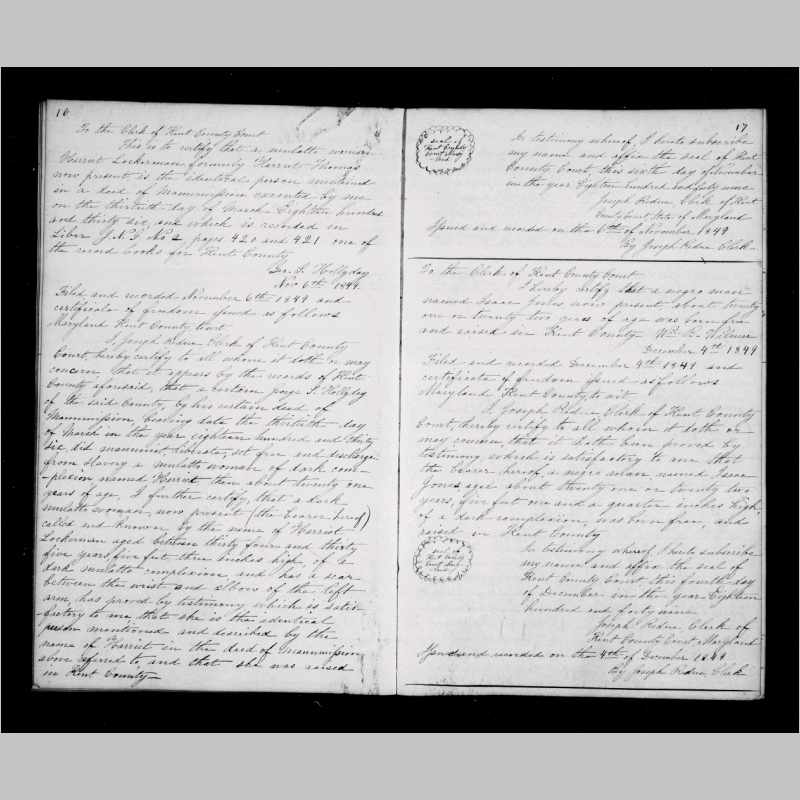 16
To the Clerk of Kent County Court
This is to certify that a mulatto woman
Harriet Lockerman formerly Harriet Thomas
now present is the identical person mentioned
in a deed of Manumission executed by me
on the thirtieth day of March Eighteen hundred
and thirty six, and which is recorded in
Liber J.N.G. No 2 pages 420 and 421 one of
the record books for Kent County
Geo. S. Hollyday
Nov 6th 1849
Filed and recorded November 6th 1849 and
certificate of freedom issued as follows
Maryland Kent County Court
I, Joseph Redue Clerk of Kent County
Court, hereby certify to all whom it doth or may
concern that it appears by the records of Kent
County aforesaid, that a certain George S. Hollyday
of the said County, by his certain deed of
Manumission bearing date the thirtieth day
of March in the year eighteen hundred and thirty
six, did manumit, liberate, set free and discharge
from Slavery a mulatto woman of dark com-
-plexion named Harriet then about twenty one
years of age, I further certify, that a dark
mulatto woman, now present (the bearer hereof)
called and known by the name of Harriet
Lockerman aged between thirty four and thirty
five years, five feet three inches high, of a
dark mulatto complexion and has a scar
between the wrist and elbow of the left
arm, has proved by testimony which is satis-
factory to me, that she is the identical
person mentioned and described by the
name of Harriet in the deed of manumission
above referred to, and that she was raised
in Kent County
17
Seal of
Kent County
Court Mary
land
In testimony whereof, I hereto subscribe
my name and affix the seal of Kent
County Court, this sixth day of November
in the year Eighteen hundred and forty nine
Joseph Redue Clerk of Kent
County Court State of Maryland
Issued and recorded on the 6th of November 1849
By Joseph Redue Clerk
To the Clerk of Kent County Court
I hereby certify that a negro man
named Isaac Jones now present about twenty
one or twenty two years of age was born free
and raised in Kent County Wm B. Wilmer
December 4th 1849
Filed and recorded December 4th 1849 and
certificate of freedom issued as follows
Maryland Kent County to wit
I, Joseph Redue, Clerk of Kent County
Court, hereby certify to all whom it doth or
may concern, that it hath been proved by
testimony which is satisfactory to me that
the bearer hereof, a negro man named Isaac
Jones aged about twenty one or twenty two
years, five feet one and a quarter inches high,
of a dark complexion, was born free, and
raised in Kent County
Seal of
Kent County
Court Mary
land
In testimony whereof I hereto subscribe
my name and affix the seal of
Kent County Court this fourth day
of December in the year Eighteen
hundred and forty nine
Joseph Redue Clerk of
Kent County Court Maryland
Issued and recorded on the 4th of December 1849
By Joseph Redue, Clerk